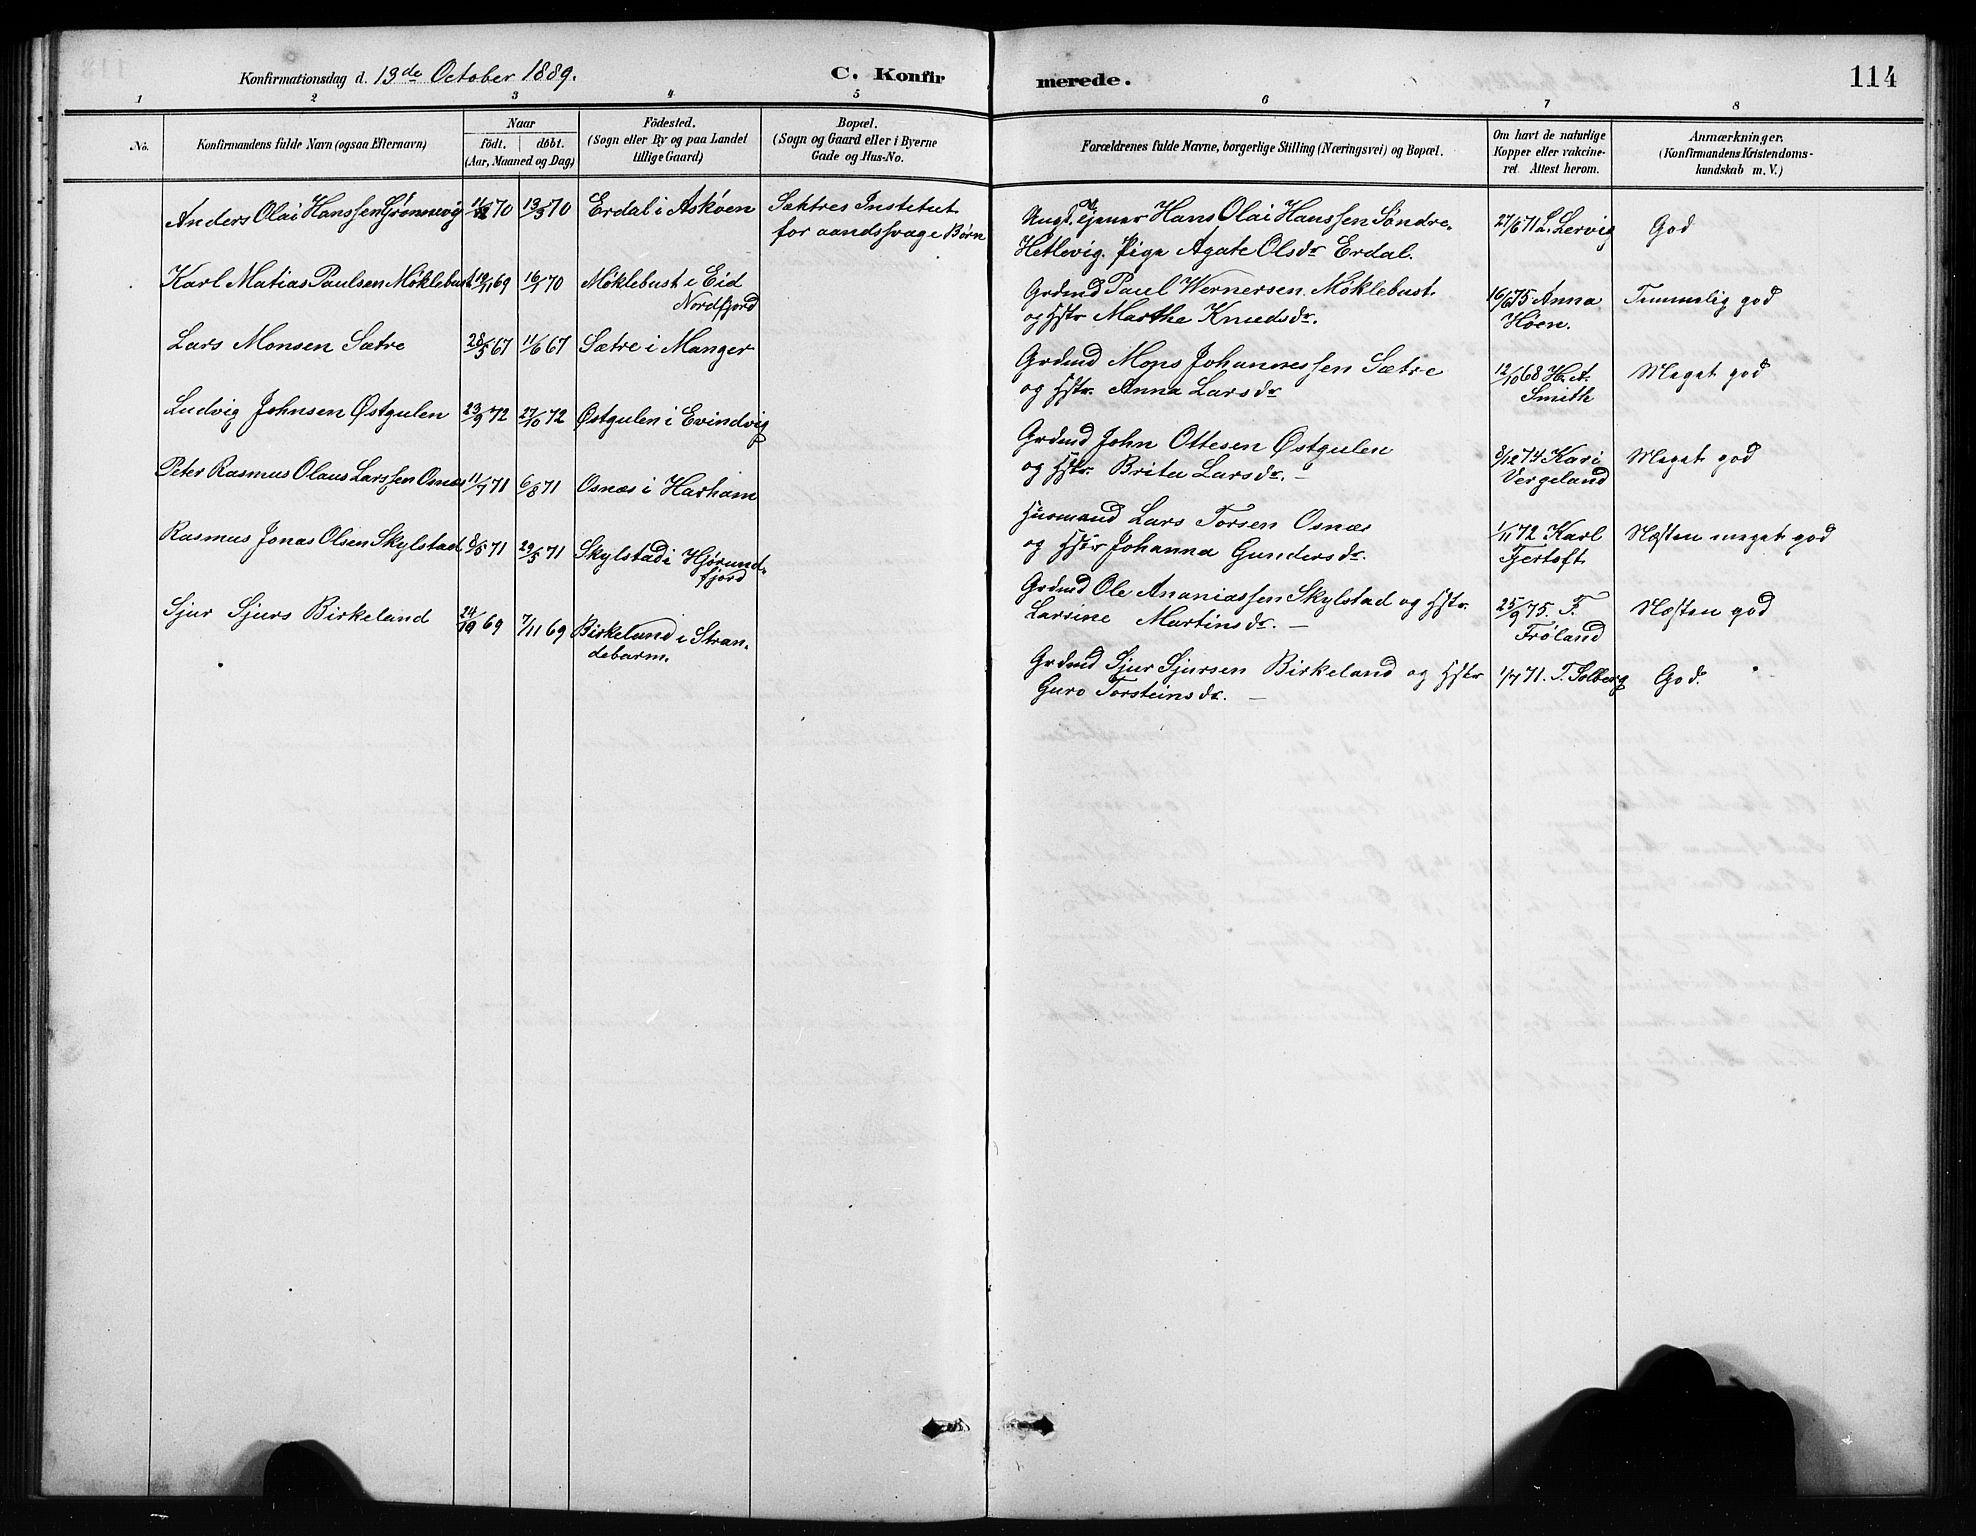 Konfirmationsdag d. 13de October 1889.
C. Konfirmerede.
114
1 2 3 4 5 6 7 8
No.
Konfirmandens fulde Navn (ogsaa Efternavn)
Naar
födt. döbt.
(Aar, Maaned og Dag)
Födested.
(Sogn eller By og paa Landet
tillige Gaard)
Bopæl.
(Sogn og Gaard eller i Byerne
Gade og Hus-No.
Forældrenes fulde Navne, borgerlige Stilling (Næringsvei) og Bopæl.
Om havt de naturlige
Kopper eller vakcine-
ret Attest herom.
Anmærkninger.
(Konfirmandens Kristendoms-
kundskab m. V.)
Anders Olai Hanssen Grønnevig 70 13/3 70 Erdal i Askøen Sæktres Institut
for aandssvage Børn
Ungk. Tjener Hans Olai Hanssen Söndre-
Hetlevig. Pige Agate Olsdr Erdal.
27/6 71 L. Lervig God
Karl Matias Paulsen Møklebust 19/11 69 16/1 70 Møklebust i Eid
Nordfjord
Grdmd Paul Wernersen Møklebust.
og Hstr Marthe Knudsdr.
16/6 75 Anna
Høen.
Temmelig god
Lars Monsen Sætre 28/5 67 11/6 67 Sætre i Manger
Grdmd Mons Johannessen Sætre
og Hstr. Anna Larsdr
12/10 68 H. A.
Smith
Meget god
Ludvig Johnsen Østgulen 23/9 72 27/10 72 Østgulen i Evindvig
Grdmd John Ottesen Østgulen
og Hstr. Brita Larsdr. –
9/12 74 Kari
Vergeland
Meget god
Peter Rasmus Olaus Larssen Osnæs 11/7 71 6/8 71 Osnæs i Harham
Husmand Lars Torsen Osnæs
og Hstr Johanna Gundersdr.
1/11 72 Karl
Fjertoft.
Næsten meget god
Rasmus Jonas Olsen Skylstad 8/5 71 29/5 71 Skylstad i Hjørund-
fjord
Grdmd Ole Ananiassen Skylstad og Hstr.
Larrine Martinsdr. –
25/9 75. F.
Frøland
Næsten god
Sjur Sjurs Birkeland 24/10 69 7/11 69 Birkeland i Stran-
debarm.
Grdmd Sjur Sjursen Birkeland og Hstr
Guro Torsteinsdr. –
1/7 71. T. Solberg God.